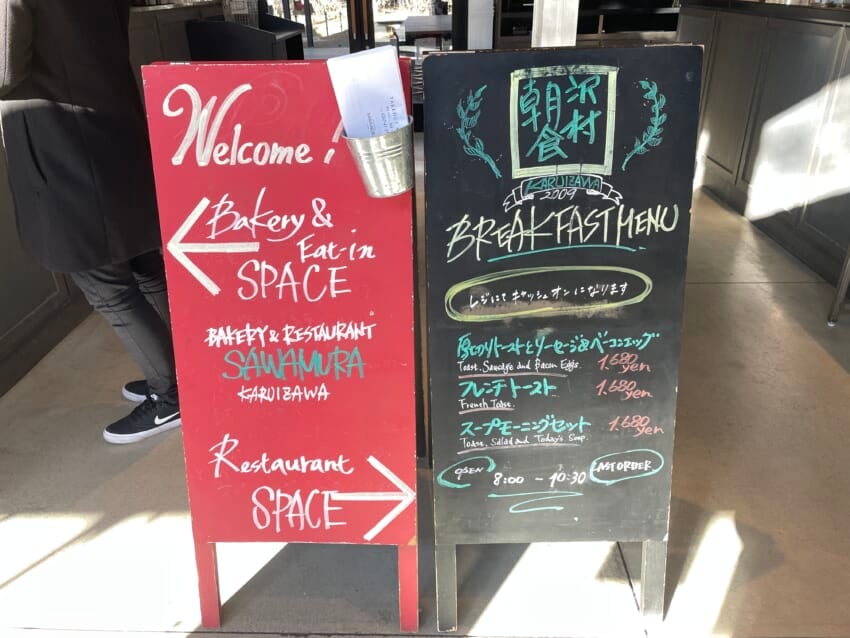 Welcome!
Bakery &
Eat-in
SPACE
BAKERY & RESTAURANT
SAWAMURA
KARUIZAWA
Restaurant
SPACE
朝食
沢村
KARUIZAWA
2009
BREAKFAST MENU
レジにて キャッシュオンになります
厚切りトーストとソーセージ&ベーコンエッグ
Toast, Sausage and Bacon Eggs.
1.680 yen
フレンチトースト
French Toast.
1.680 yen
スープモーニングセット
Toast, Salad and Today's Soup.
1.680 yen
OPEN
8:00 ~ 10:30
LAST ORDER